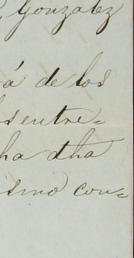 Gonzalez
á de los
sentre=
ha dha
smo con=